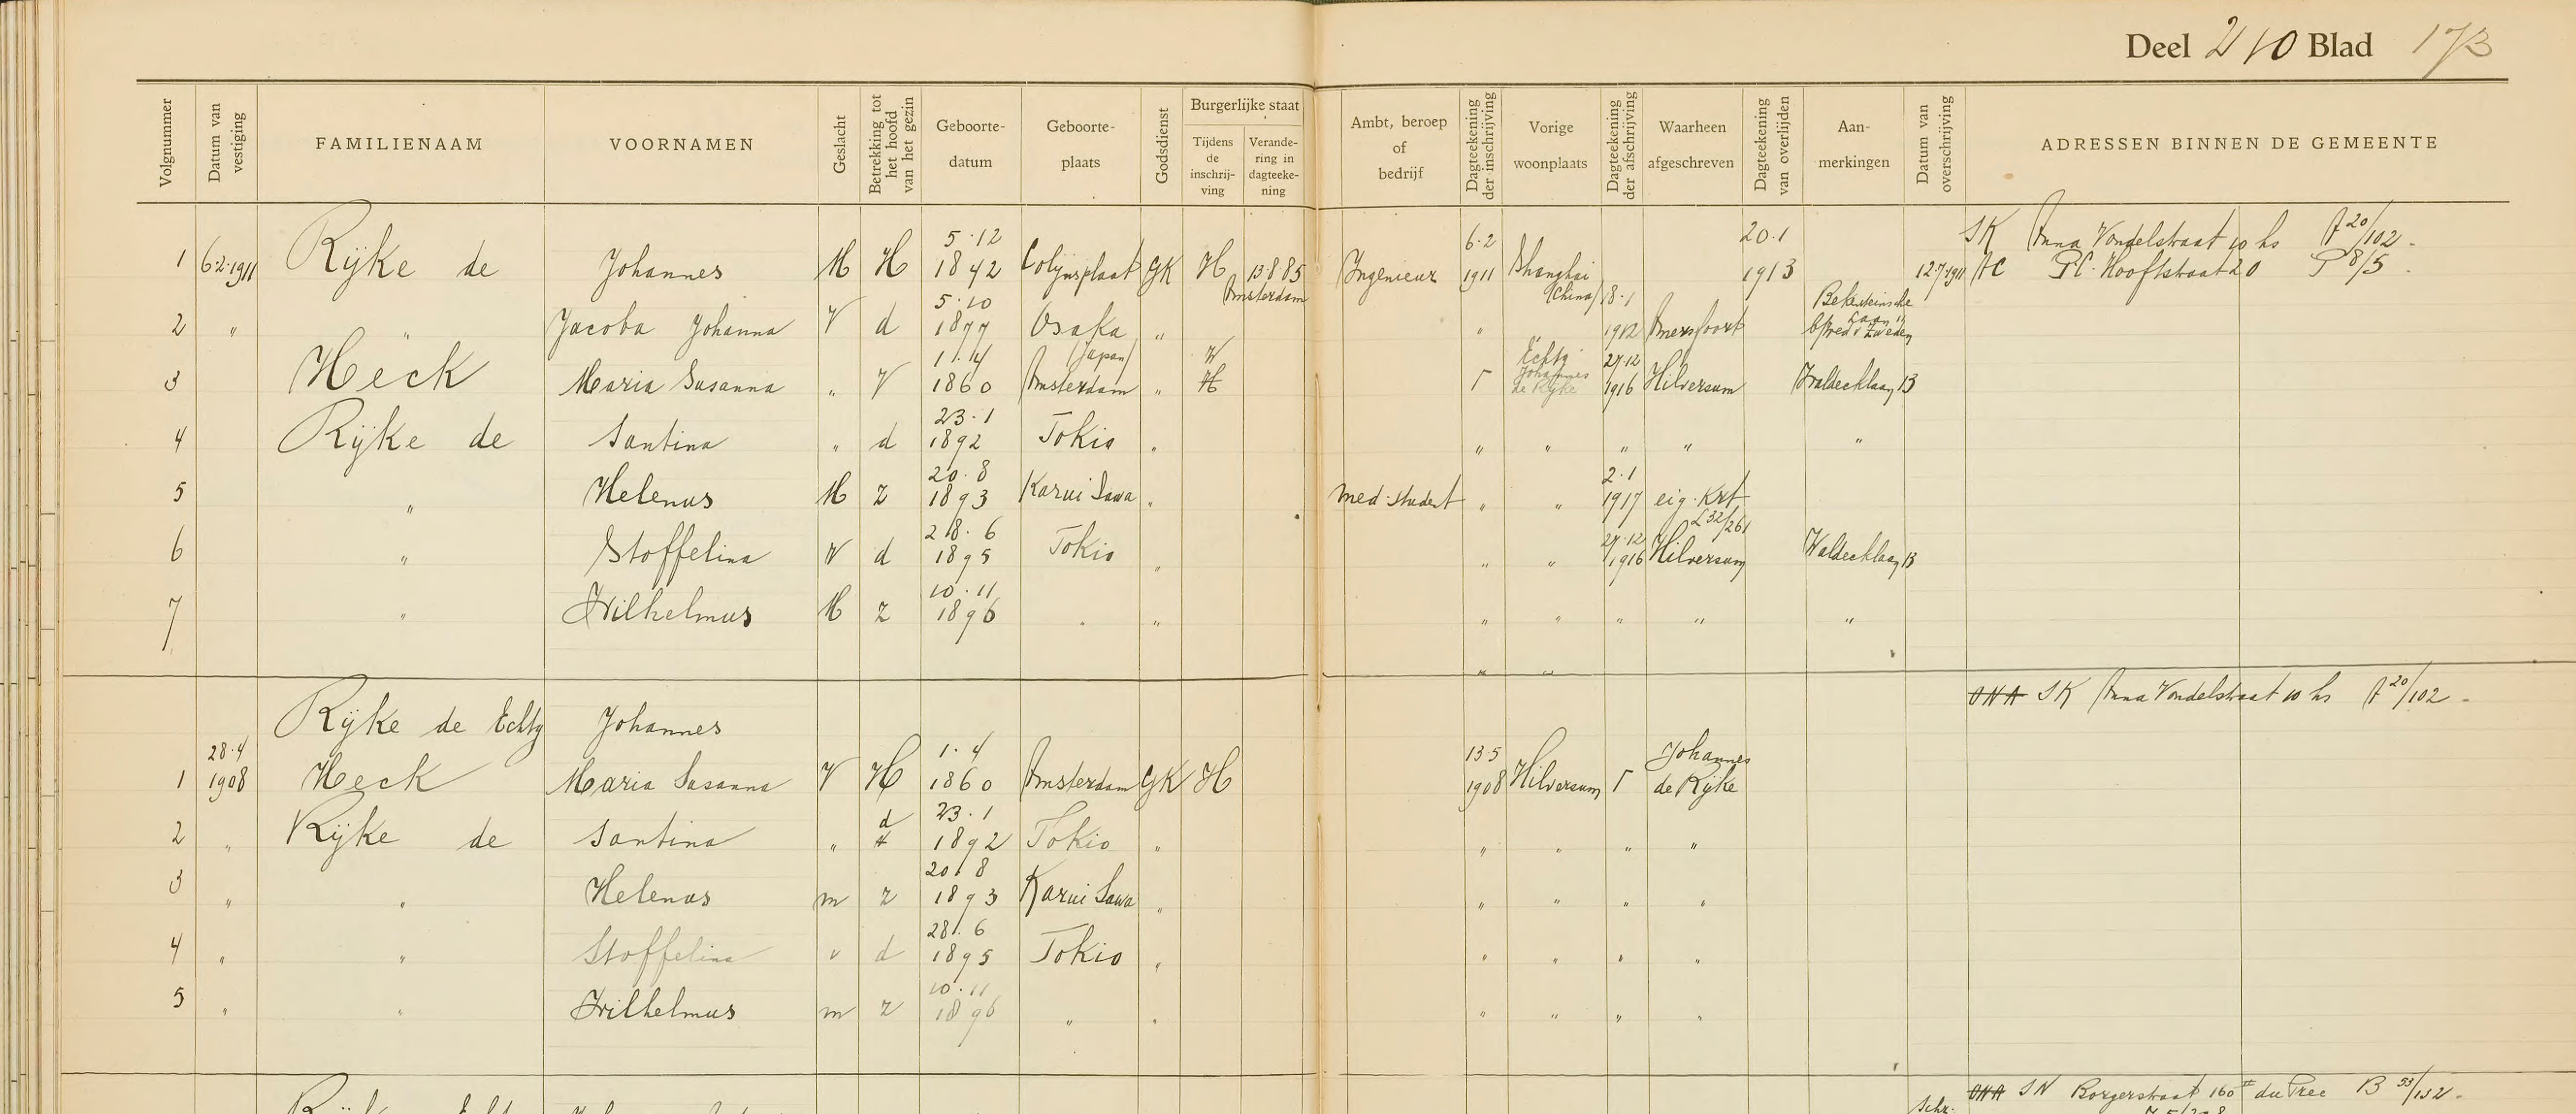 Deel 210 Blad 173
Volgnummer Datum van vestiging FAMILIENAAM VOORNAMEN Geslacht Betrekking tot het hoofd van het gezin Geboorte-datum Geboorte-plaats Godsdienst Burgerlijke staat Tijdens de inschrij-ving Verande-ring in dagteeke-ning Ambt, beroep of bedrijf Dagteekening der inschrijving Vorige woonplaats Dagteekening der afschrijving Waarheen afgeschreven Dagteekening van overlijden Aan-merkingen Datum van overschrijving ADRESSEN BINNEN DE GEMEENTE
SK Anna Vondelstraat 10 hs A 20/102
1 6.2.1911 Rijke de Johannes M H 5.12 1842 Colijnsplaat GK H 13.8.85 Amsterdam Ingenieur 6.2 1911 Shanghai (China) 20.1 1913 12.7.1911 AC P.C. Hooftstraat 20 P 8/5
2 " " Jacoba Johanna V d 5.10 1877 Osaka (Japan) " " " 18.1 1912 Amersfoort
3 Heck Maria Susanna " V 1.4 1860 Amsterdam " W H Γ Echtg Johannes de Rijke 27.12 1916 Hilversum Waldecklaan 13
4 Rijke de Santina " d 23.1 1892 Tokio " " " " " "
5 " Helenus M z 20.8 1893 Karui Sawa " med. student " " 2.1 1917 eig. Krt L 32/261
6 " Stoffelina V d 28.6 1895 Tokio " " " 27.12 1916 Hilversum Waldecklaan 13
7 " Wilhelmus M z 10.11 1896 " " " " " " "
Rijke de Echtg Johannes ONA SK Anna Vondelstraat 10 hs A 20/102
1 28.4 1908 Heck Maria Susanna V H 1.4 1860 Amsterdam GK H 13.5 1908 Hilversum Γ Johannes de Rijke
2 " Rijke de Santina " d 23.1 1892 Tokio " " " " "
3 " " Helenus m z 20.8 1893 Karui Sawa " " " " "
4 " " Stoffelina v d 28.6 1895 Tokio " " " " "
5 " " Wilhelmus m z 10.11 1896 " " " " " "
ONA SN Borgerstraat 160 II du Pree B 53/152
Schr.